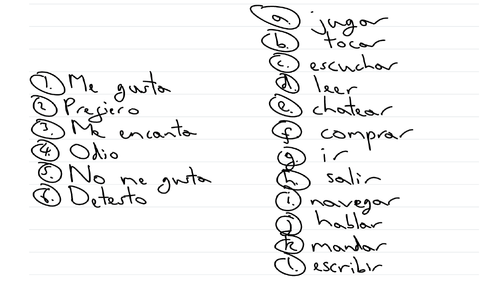 1. Me gusta
2. Prefiero
3. Me encanta
4. Odio
5. No me gusta
6. Detesto
a. jugar
b. tocar
c. escuchar
d. leer
e. chatear
f. comprar
g. ir
h. salir
i. navegar
j. hablar
k. mandar
l. escribir